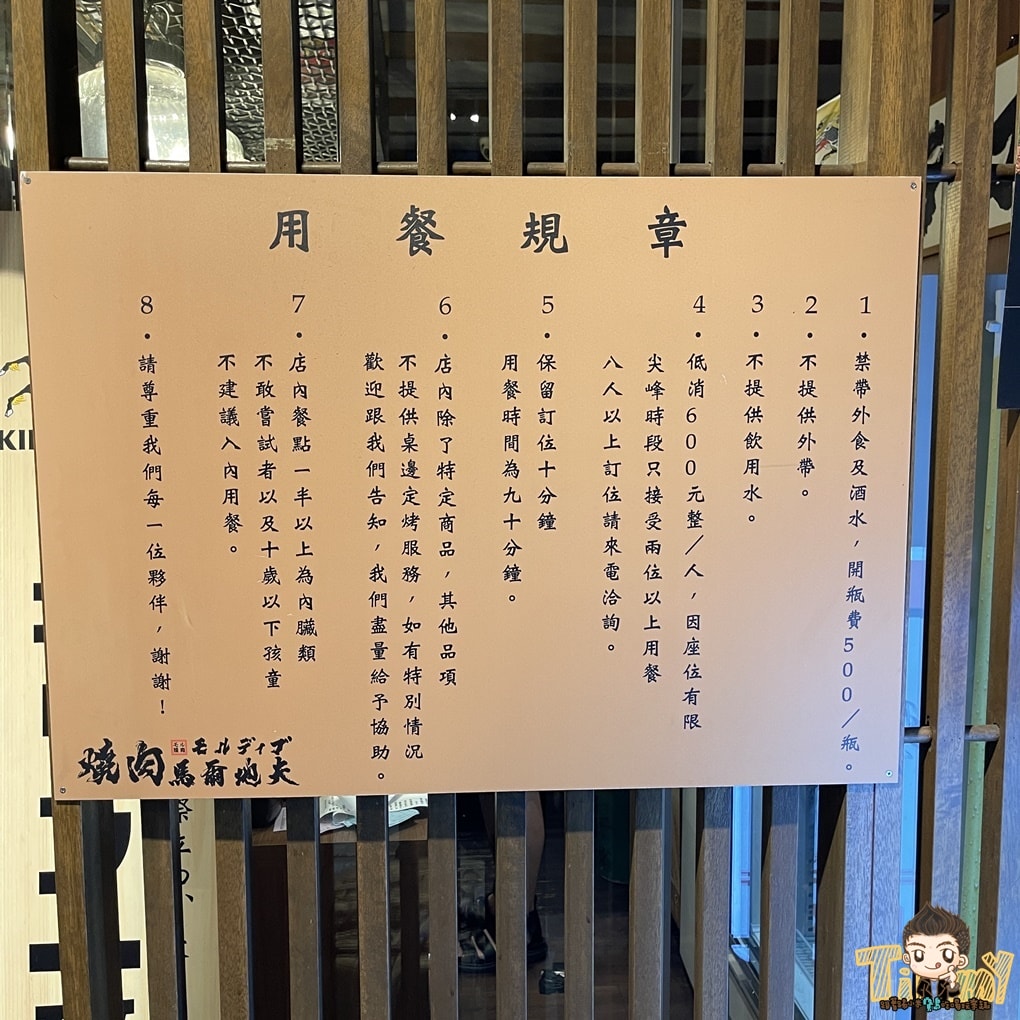 用餐規章
1.禁帶外食及酒水,開瓶費500/瓶。
2.不提供外帶。
3.不提供飲用水。
4.低消600元整/人,因座位有限
尖峰時段只接受兩位以上用餐
八人以上訂位請來電洽詢。
5.保留訂位十分鐘
用餐時間為九十分鐘。
6.店內除了特定商品,其他品項
不提供桌邊定烤服務,如有特別情況
歡迎跟我們告知,我們盡量給予協助。
7.店內餐點一半以上為內臟類
不敢嘗試者以及十歲以下孩童
不建議入內用餐。
8.請尊重我們每一位夥伴,謝謝!
燒肉
モルディブ
馬爾地夫
KI